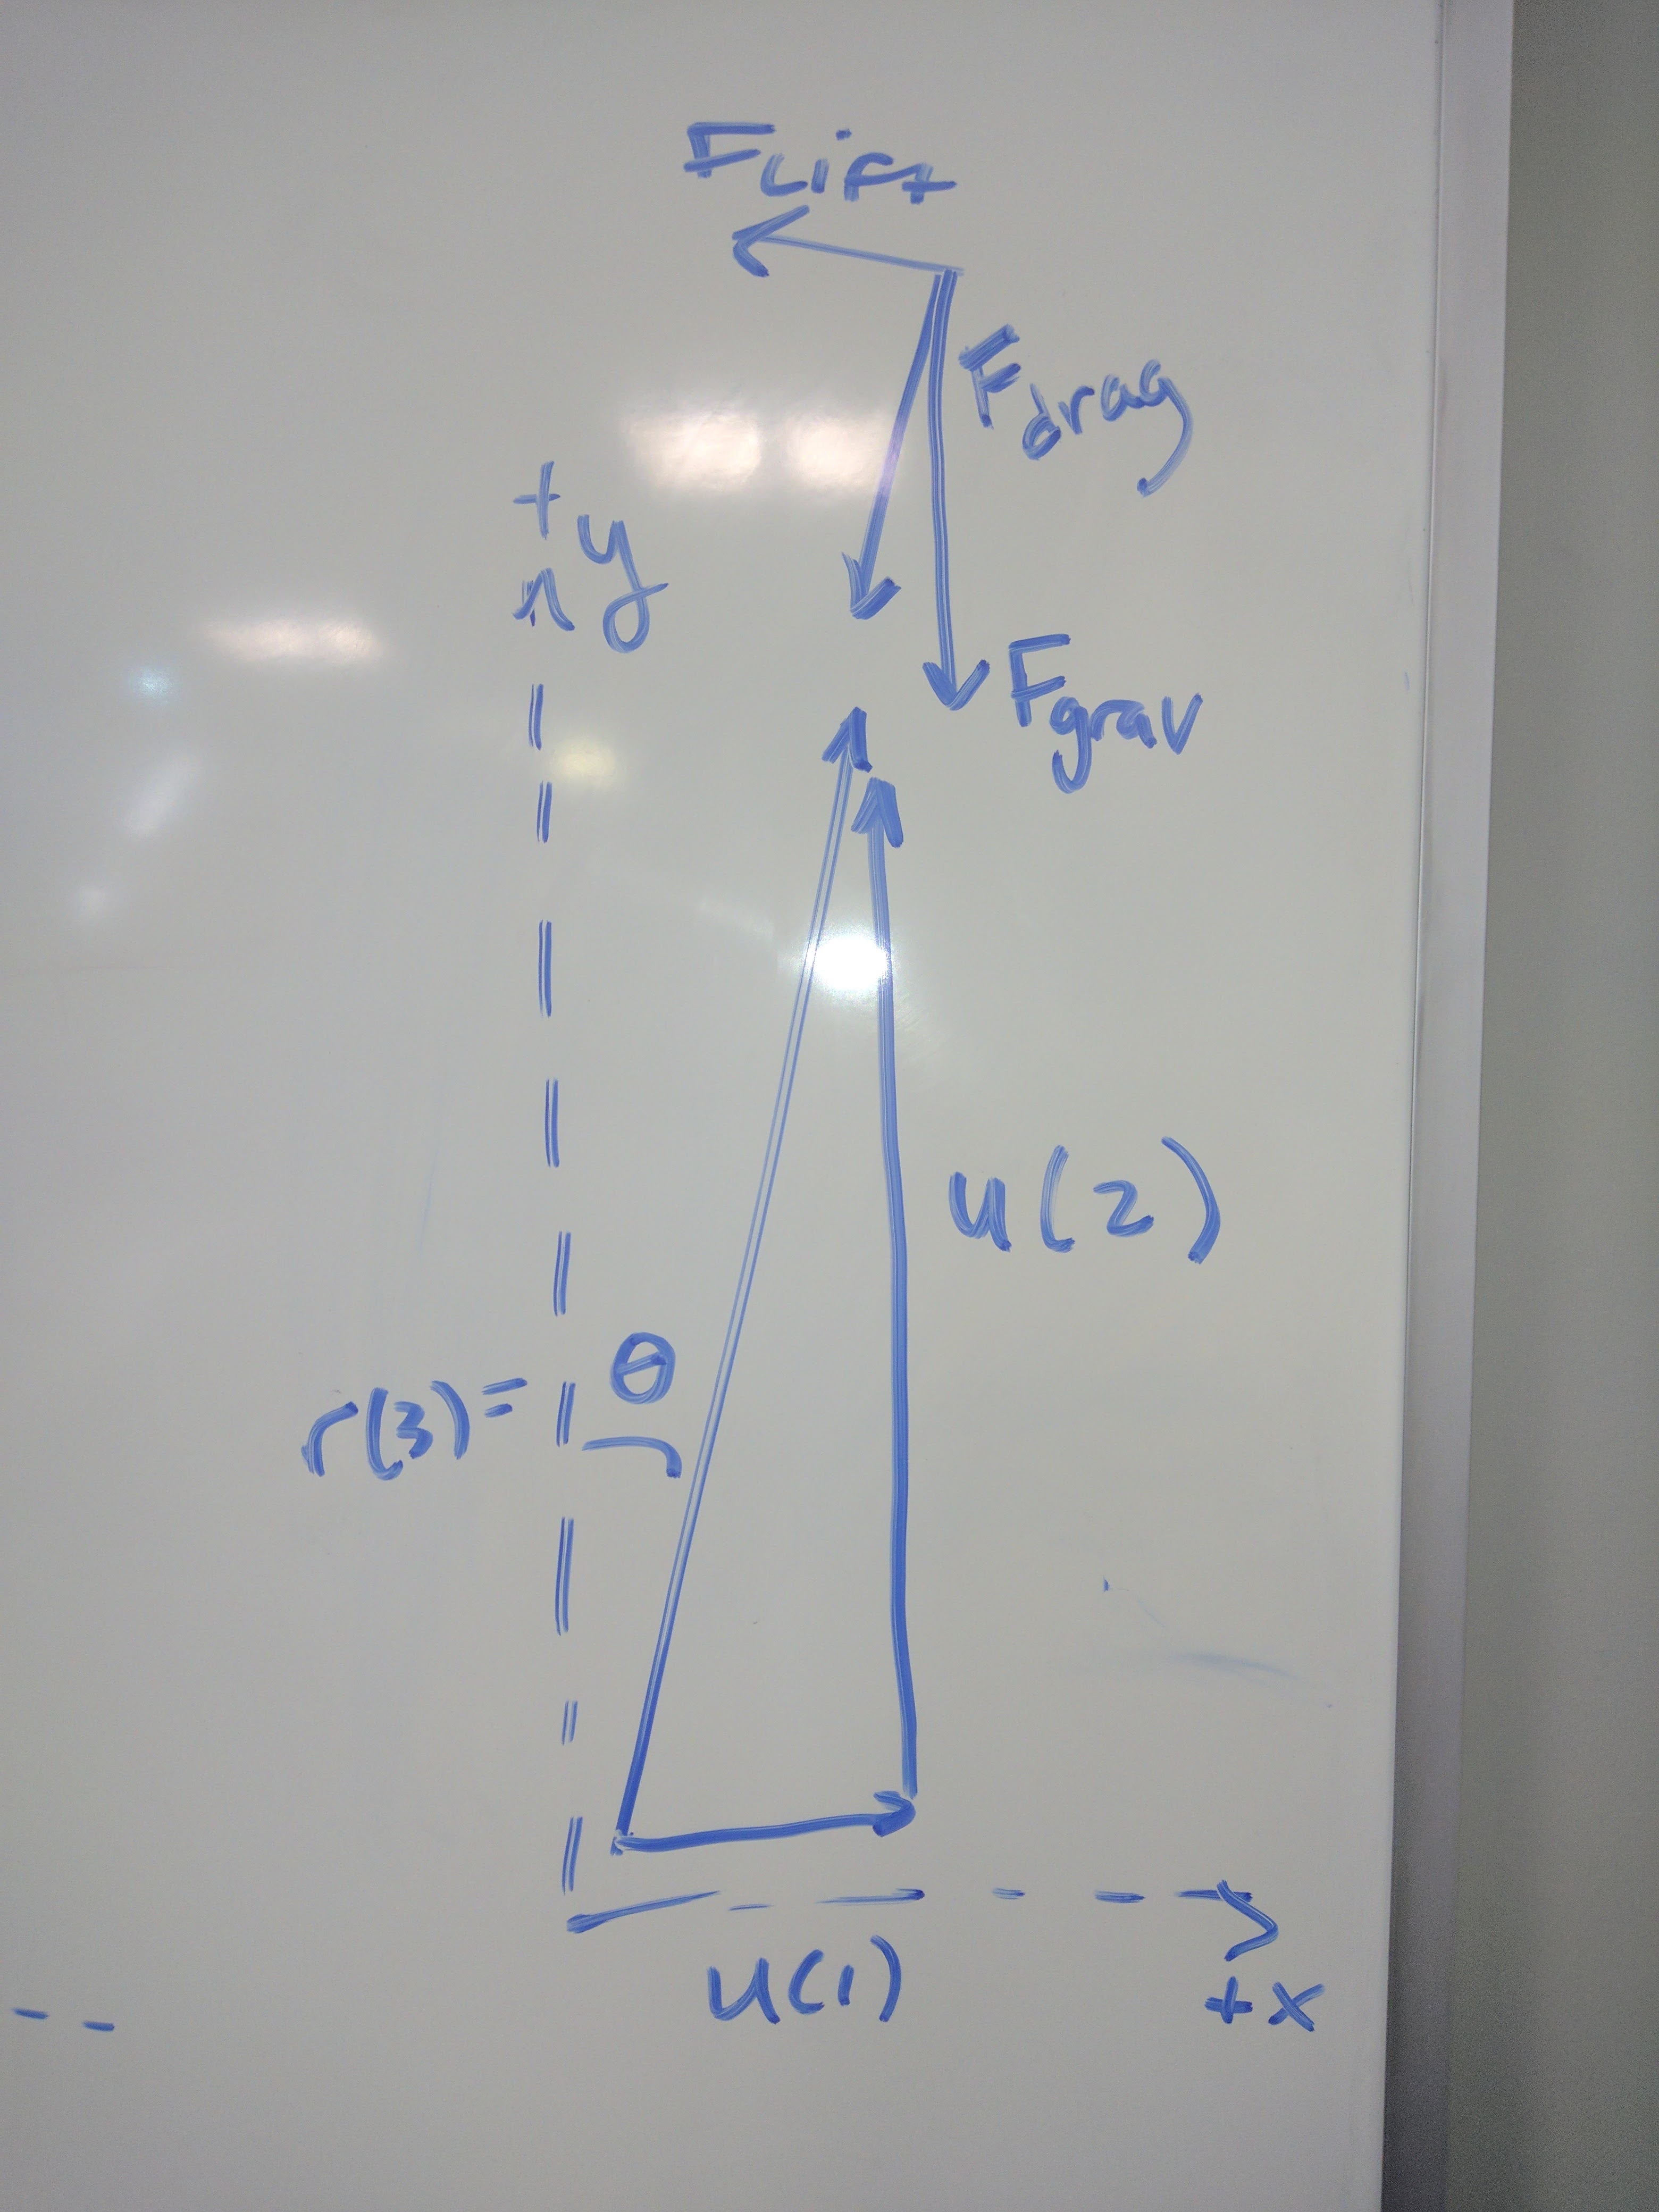 FLift
Fdrag
+y
Fgrav
u(2)
θ
r(3)=
u(1)
+x